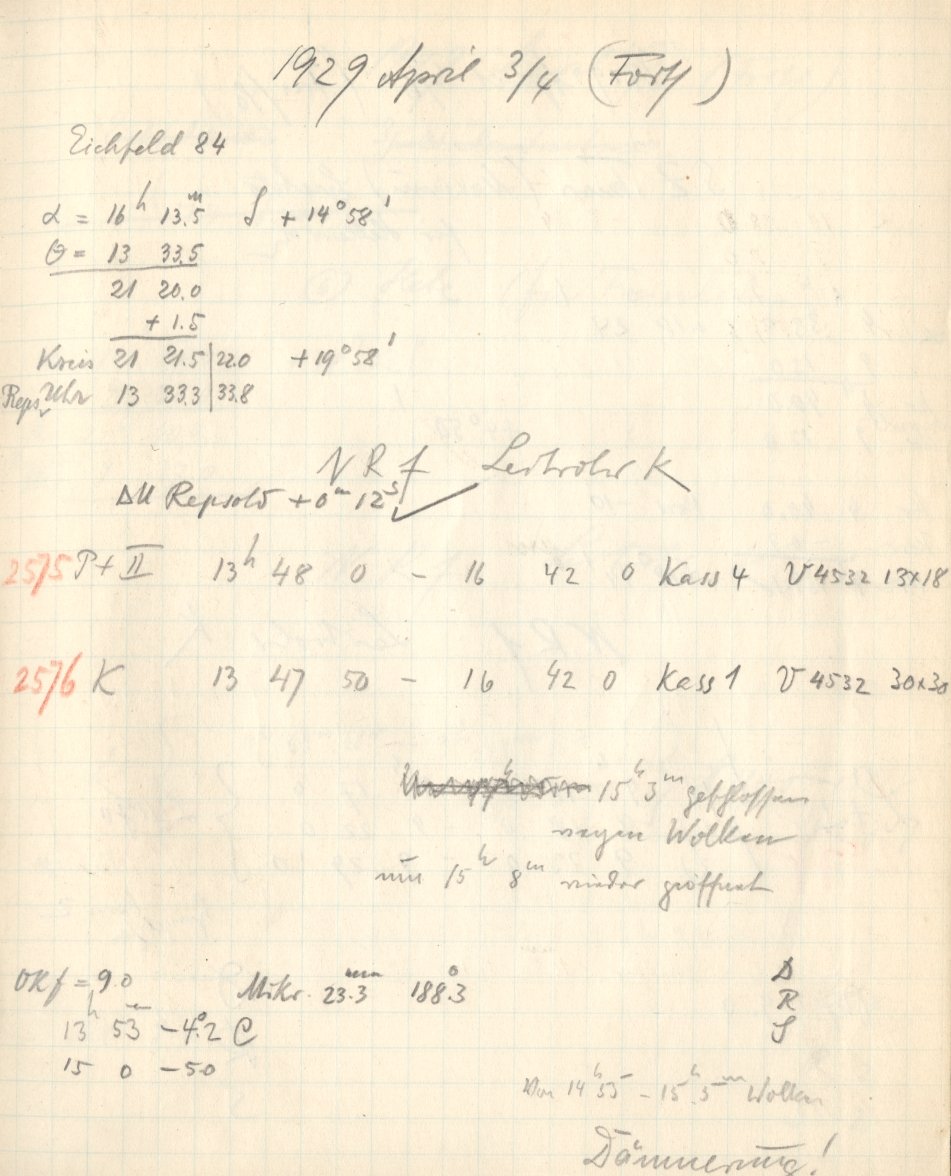 1929 April 3/4 (Forts)
Eichfeld 84
α = 16ʰ 13.5ᵐ δ + 14°58'
Θ = 13 33.5
21 20.0
+ 1.5
Kreis 21 21.5 | 22.0 + 19°58'
Reps. Uhr 13 33.3 | 33.8
NRf Leitrohr K
ΔU Repsold + 0ᵐ 12ˢ
2575 P + II 13ʰ 48 0 – 16 42 0 Kass 4 V 4532 13x18
2576 K 13 47 50 – 16 42 0 Kass 1 V 4532 30x30
15ʰ 3ᵐ geschlossen
wegen Wolken
um 15ʰ 8ᵐ wieder geöffnet
OKf = 9.0 Mikr. 23.3ᵐᵐ 188°.3
D
R
S
13ʰ 53ᵐ – 4°.2 C
15 0 – 5.0
Von 14ʰ 55 – 15ʰ 5ᵐ Wolken
Dämmerung!